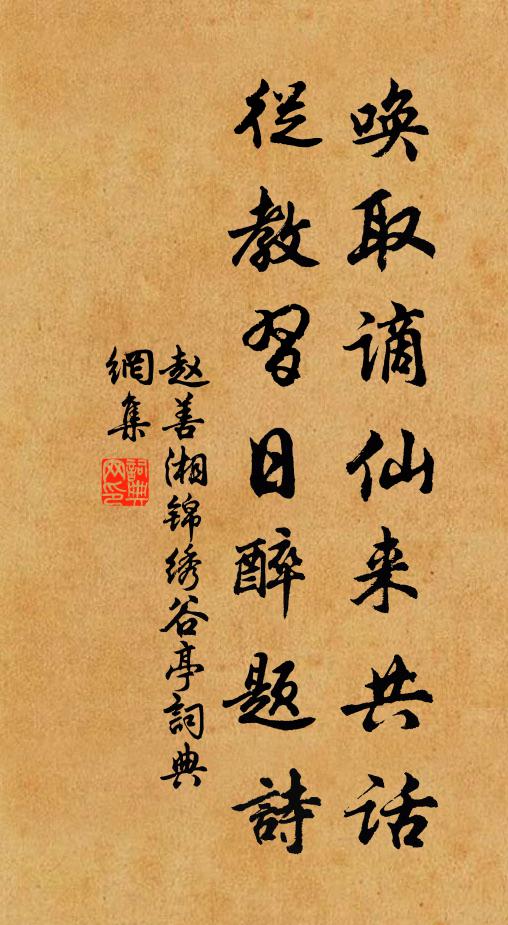 唤取谪仙来共话
従教習日醉题詩
赵善湘锦绣谷亭詞典
網集
詞典
网印